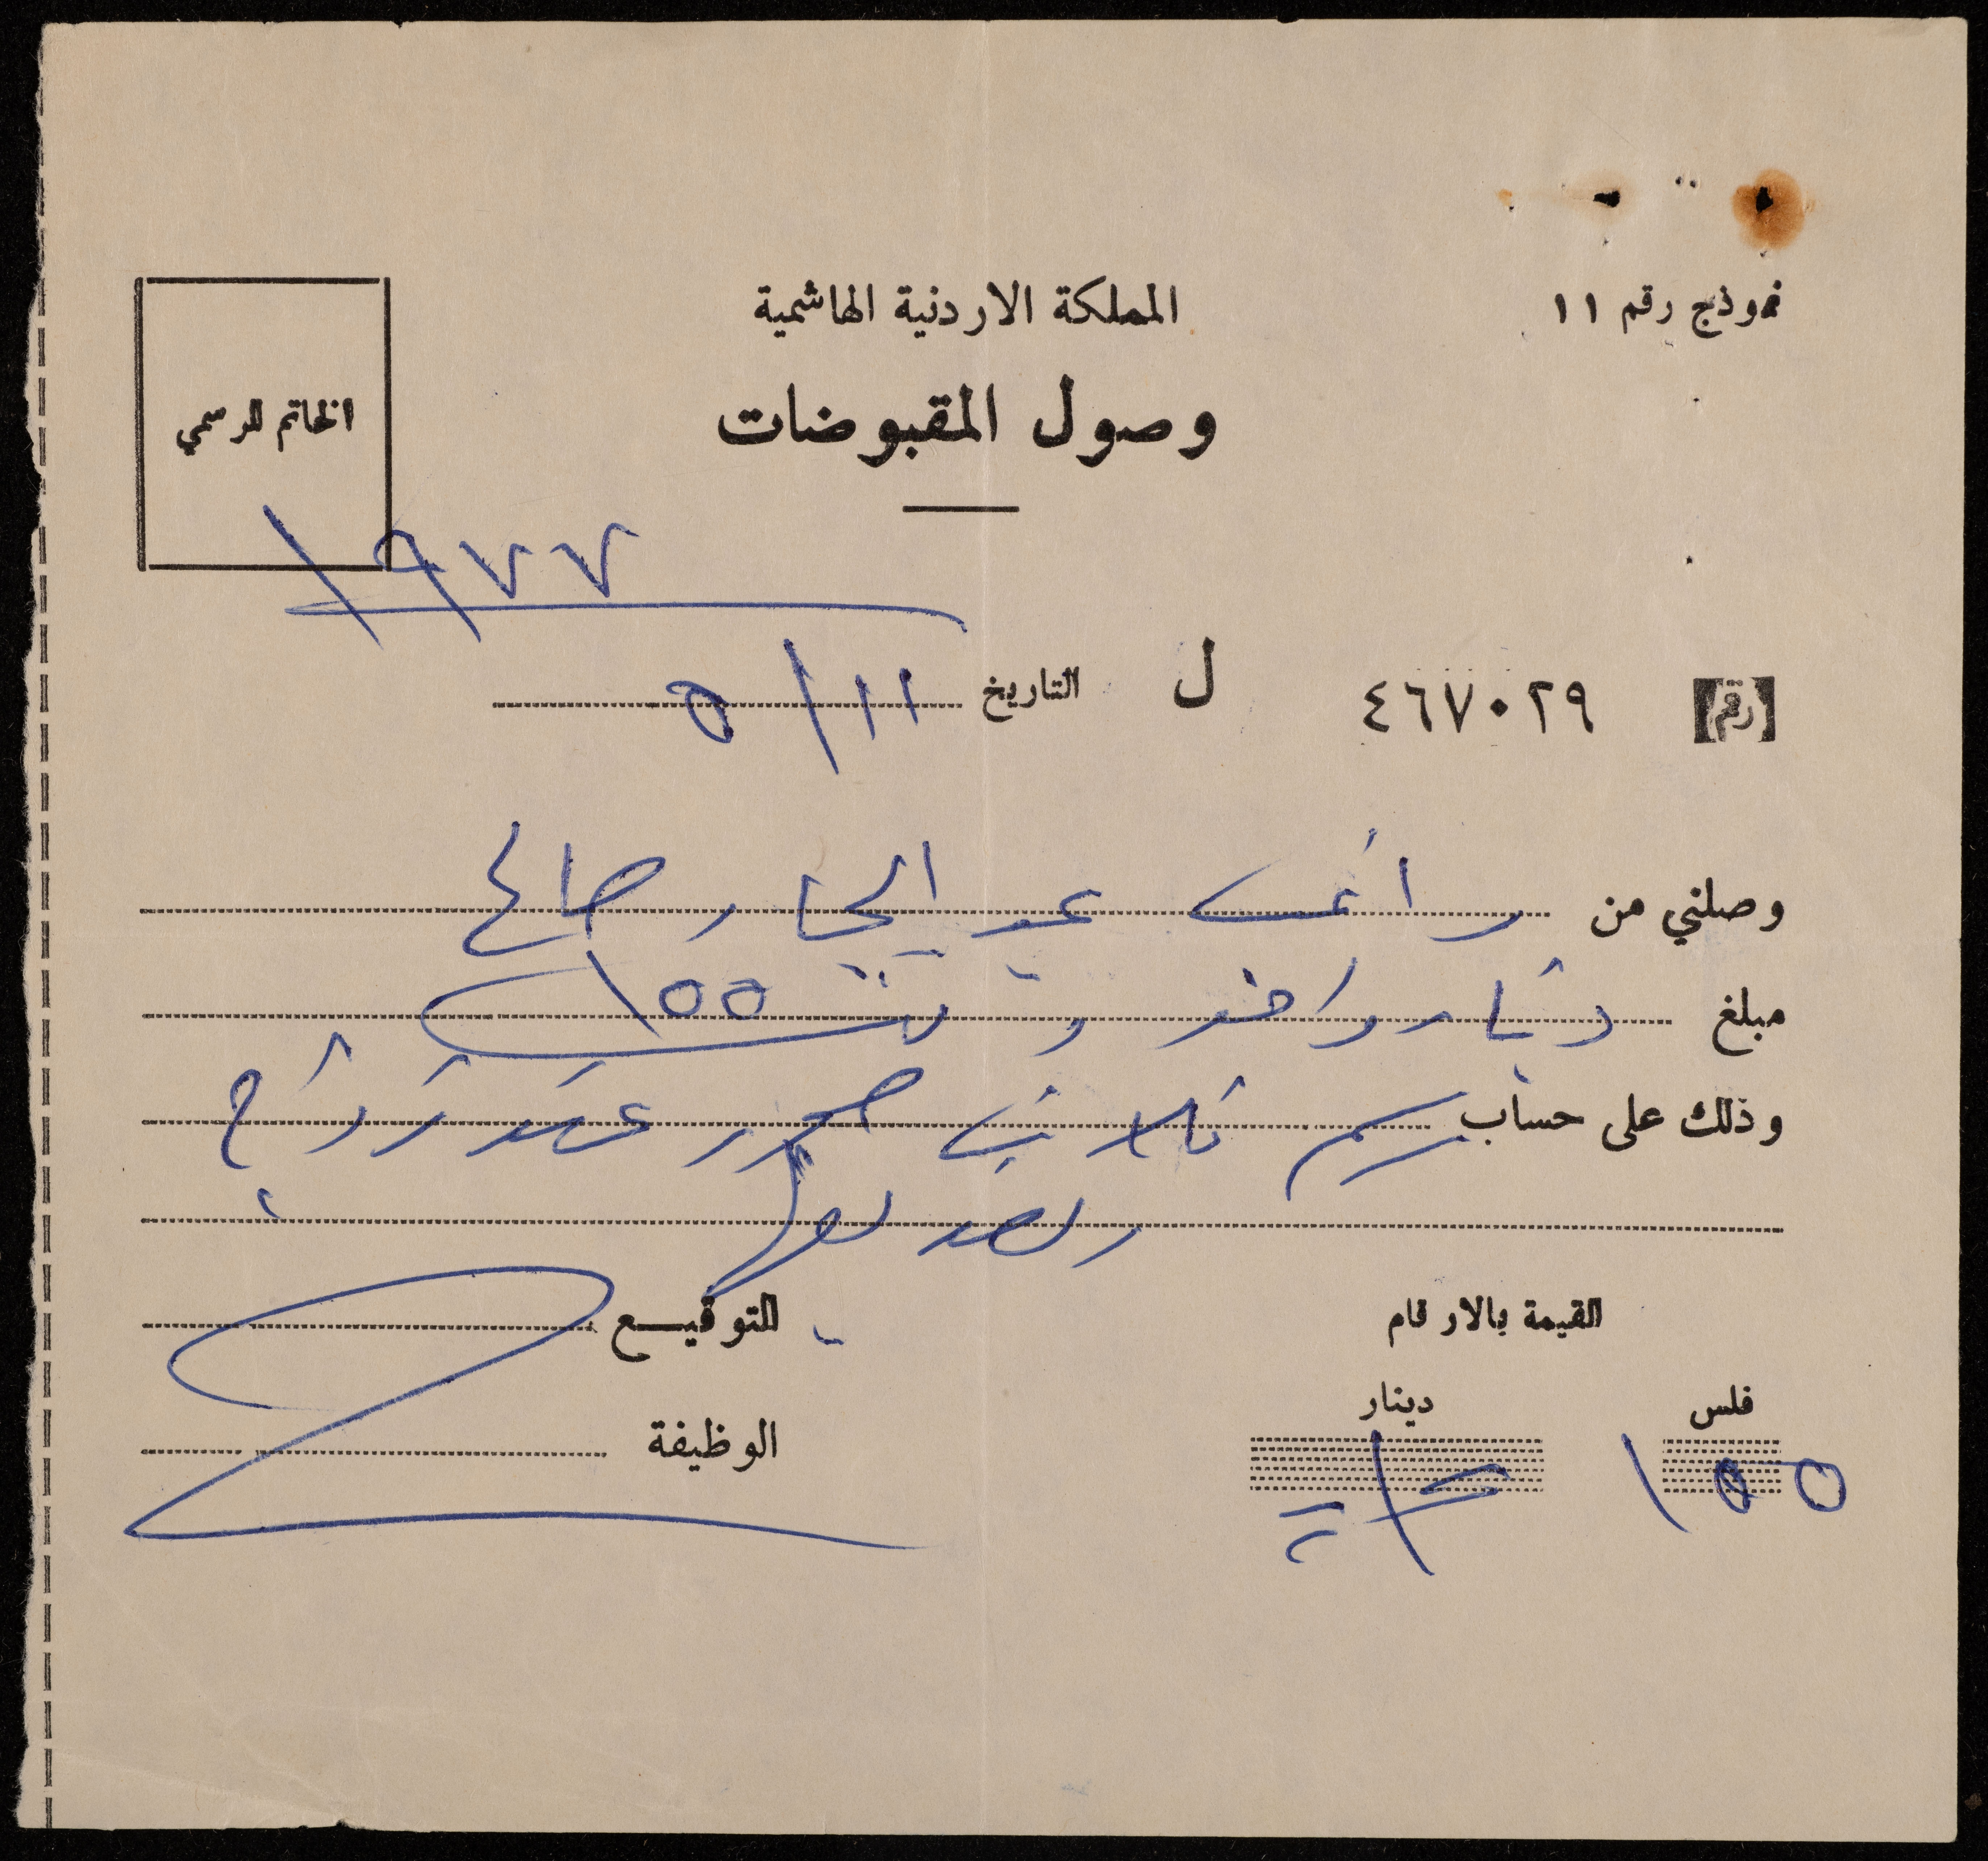 نموذج رقم ١١
المملكة الاردنية الهاشمية
وصول المقبوضات
الخاتم الرسمي
١٩٧٧
رقم ٤٦٧٠٢٩ ل التاريخ ١١/٥
وصلني من عبد الجبار صالح
مبلغ دينار واحد و ١٥٥
وذلك على حساب رسم ثلاث صور عقد زواج
القيمة بالارقام
التوقيع
فلس دينار
الوظيفة
١٥٥ ١